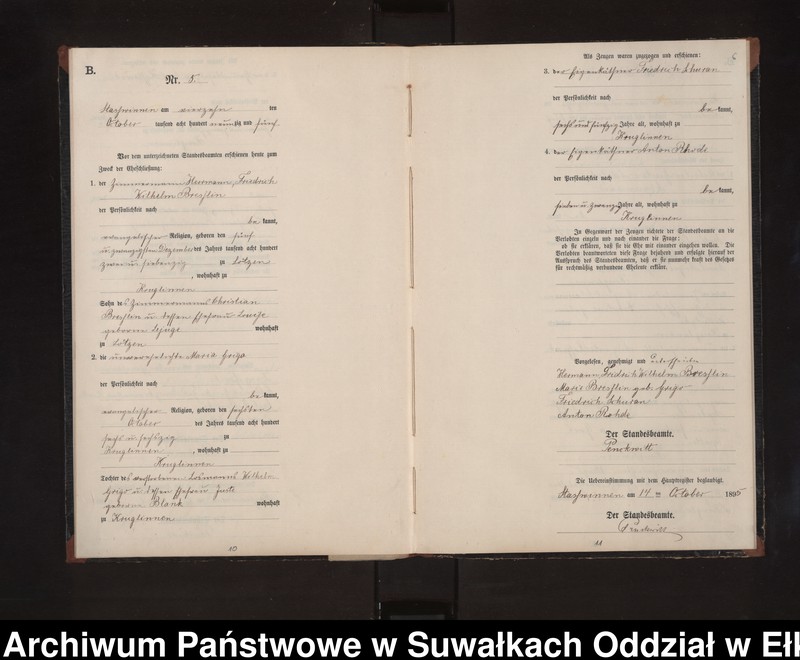 B.
Nr. 5.
am vierzehn ten
October tausend acht hundert neunzig und fünf.
Vor dem unterzeichneten Standesbeamten erschienen heute zum
Zweck der Eheschließung:
1. der Zimmermann Hermann Friedrich
Wilhelm Breßlin
der Persönlichkeit nach
be kannt,
evangelischer Religion, geboren den fünf
u. zwanzigsten Dezember des Jahres tausend acht hundert
zwei und siebenzig zu Lötzen
, wohnhaft zu
Konglinnen
Sohn des Zimmermanns Christian
Breßlin u. dessen Ehefrau Louise
geborene wohnhaft
zu Lötzen
2. die unverehelichte Maria Grigo
der Persönlichkeit nach
be kannt,
evangelischer Religion, geboren den sechsten
October des Jahres tausend acht hundert
sechs u. sechszig zu
Konglinnen , wohnhaft zu
Konglinnen
Tochter des verstorbenen Losmanns Wilhelm
Grigo u. dessen Ehefrau
geborene Blank wohnhaft
zu Konglinnen
10
6
Als Zeugen waren zugezogen und erschienen:
3. der Eigenkäthner Friedrich
der Persönlichkeit nach
be kannt,
sechs und fünfzig Jahre alt, wohnhaft zu
Konglinnen
4. der Eigenkäthner Anton Rohde
der Persönlichkeit nach
be kannt,
sieben u. zwanzig Jahre alt, wohnhaft zu
Konglinnen
In Gegenwart der Zeugen richtete der Standesbeamte an die
Verlobten einzeln und nach einander die Frage:
ob sie erklären, daß sie die Ehe mit einander eingehen wollen. Die
Verlobten beantworteten diese Frage bejahend und erfolgte hierauf der
Ausspruch des Standesbeamten, daß er sie nunmehr kraft des Gesetzes
für rechtmäßig verbundene Eheleute erkläre.
Vorgelesen, genehmigt und unterschrieben
Hermann Friedrich Wilhelm Breßlin
Marie Breßlin geb. Grigo
Friedrich
Anton Rohde
Der Standesbeamte.
Die Uebereinstimmung mit dem Hauptregister beglaubigt.
am 14 ten October 1895
Der Standesbeamte.
11
Archiwum Państwowe w Suwałkach Oddział w Ełk